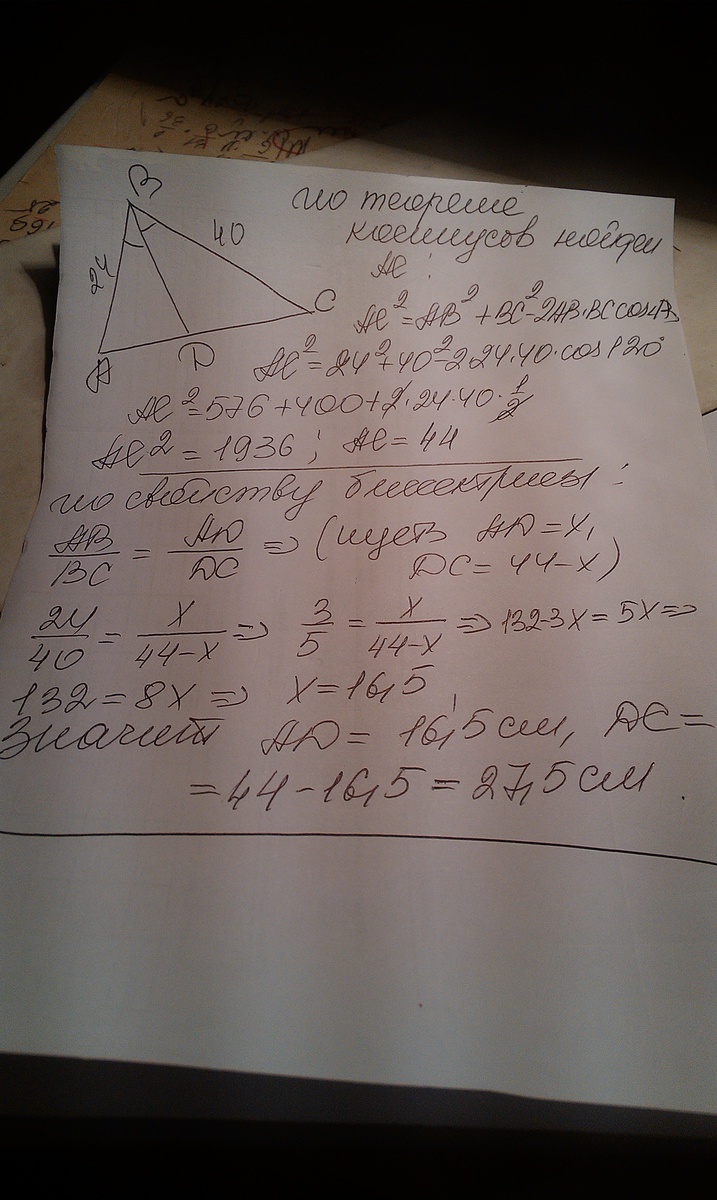 B
по теореме
косинусов найдем
40
AC:
24
C
AC² = AB² + BC² - 2AB·BC cos B
A
D
AC² = 24² + 40² - 2·24·40·cos 120°
AC² = 576 + 400 + 2·24·40·1/2
AC² = 1936; AC = 44
по свойству биссектрисы:
AB/BC = AD/DC => (пусть AD = x,
DC = 44-x)
24/40 = x/44-x => 3/5 = x/44-x => 132-3x = 5x =>
132 = 8x => x = 16,5
Значит AD = 16,5 см, DC =
= 44 - 16,5 = 27,5 см.